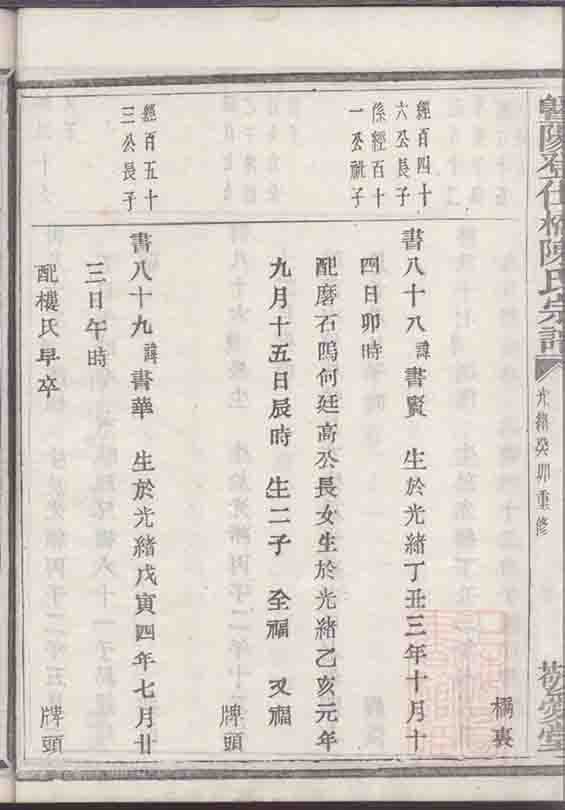 暨陽登仕橋陳氏宗譜
光緒癸卯重修
敬愛堂
橋裏
經百四十
六公長子
係經百十
一公祧子
書八十八諱書賢 生於光緒丁丑三年十月十
四日卯時
配磨石塢何廷高公長女生於光緒乙亥元年
九月十五日辰時 生二子 全福 又福
牌頭
經百五十
三公長子
書八十九諱書華 生於光緒戊寅四年七月廿
三日午時
配樓氏早卒
牌頭